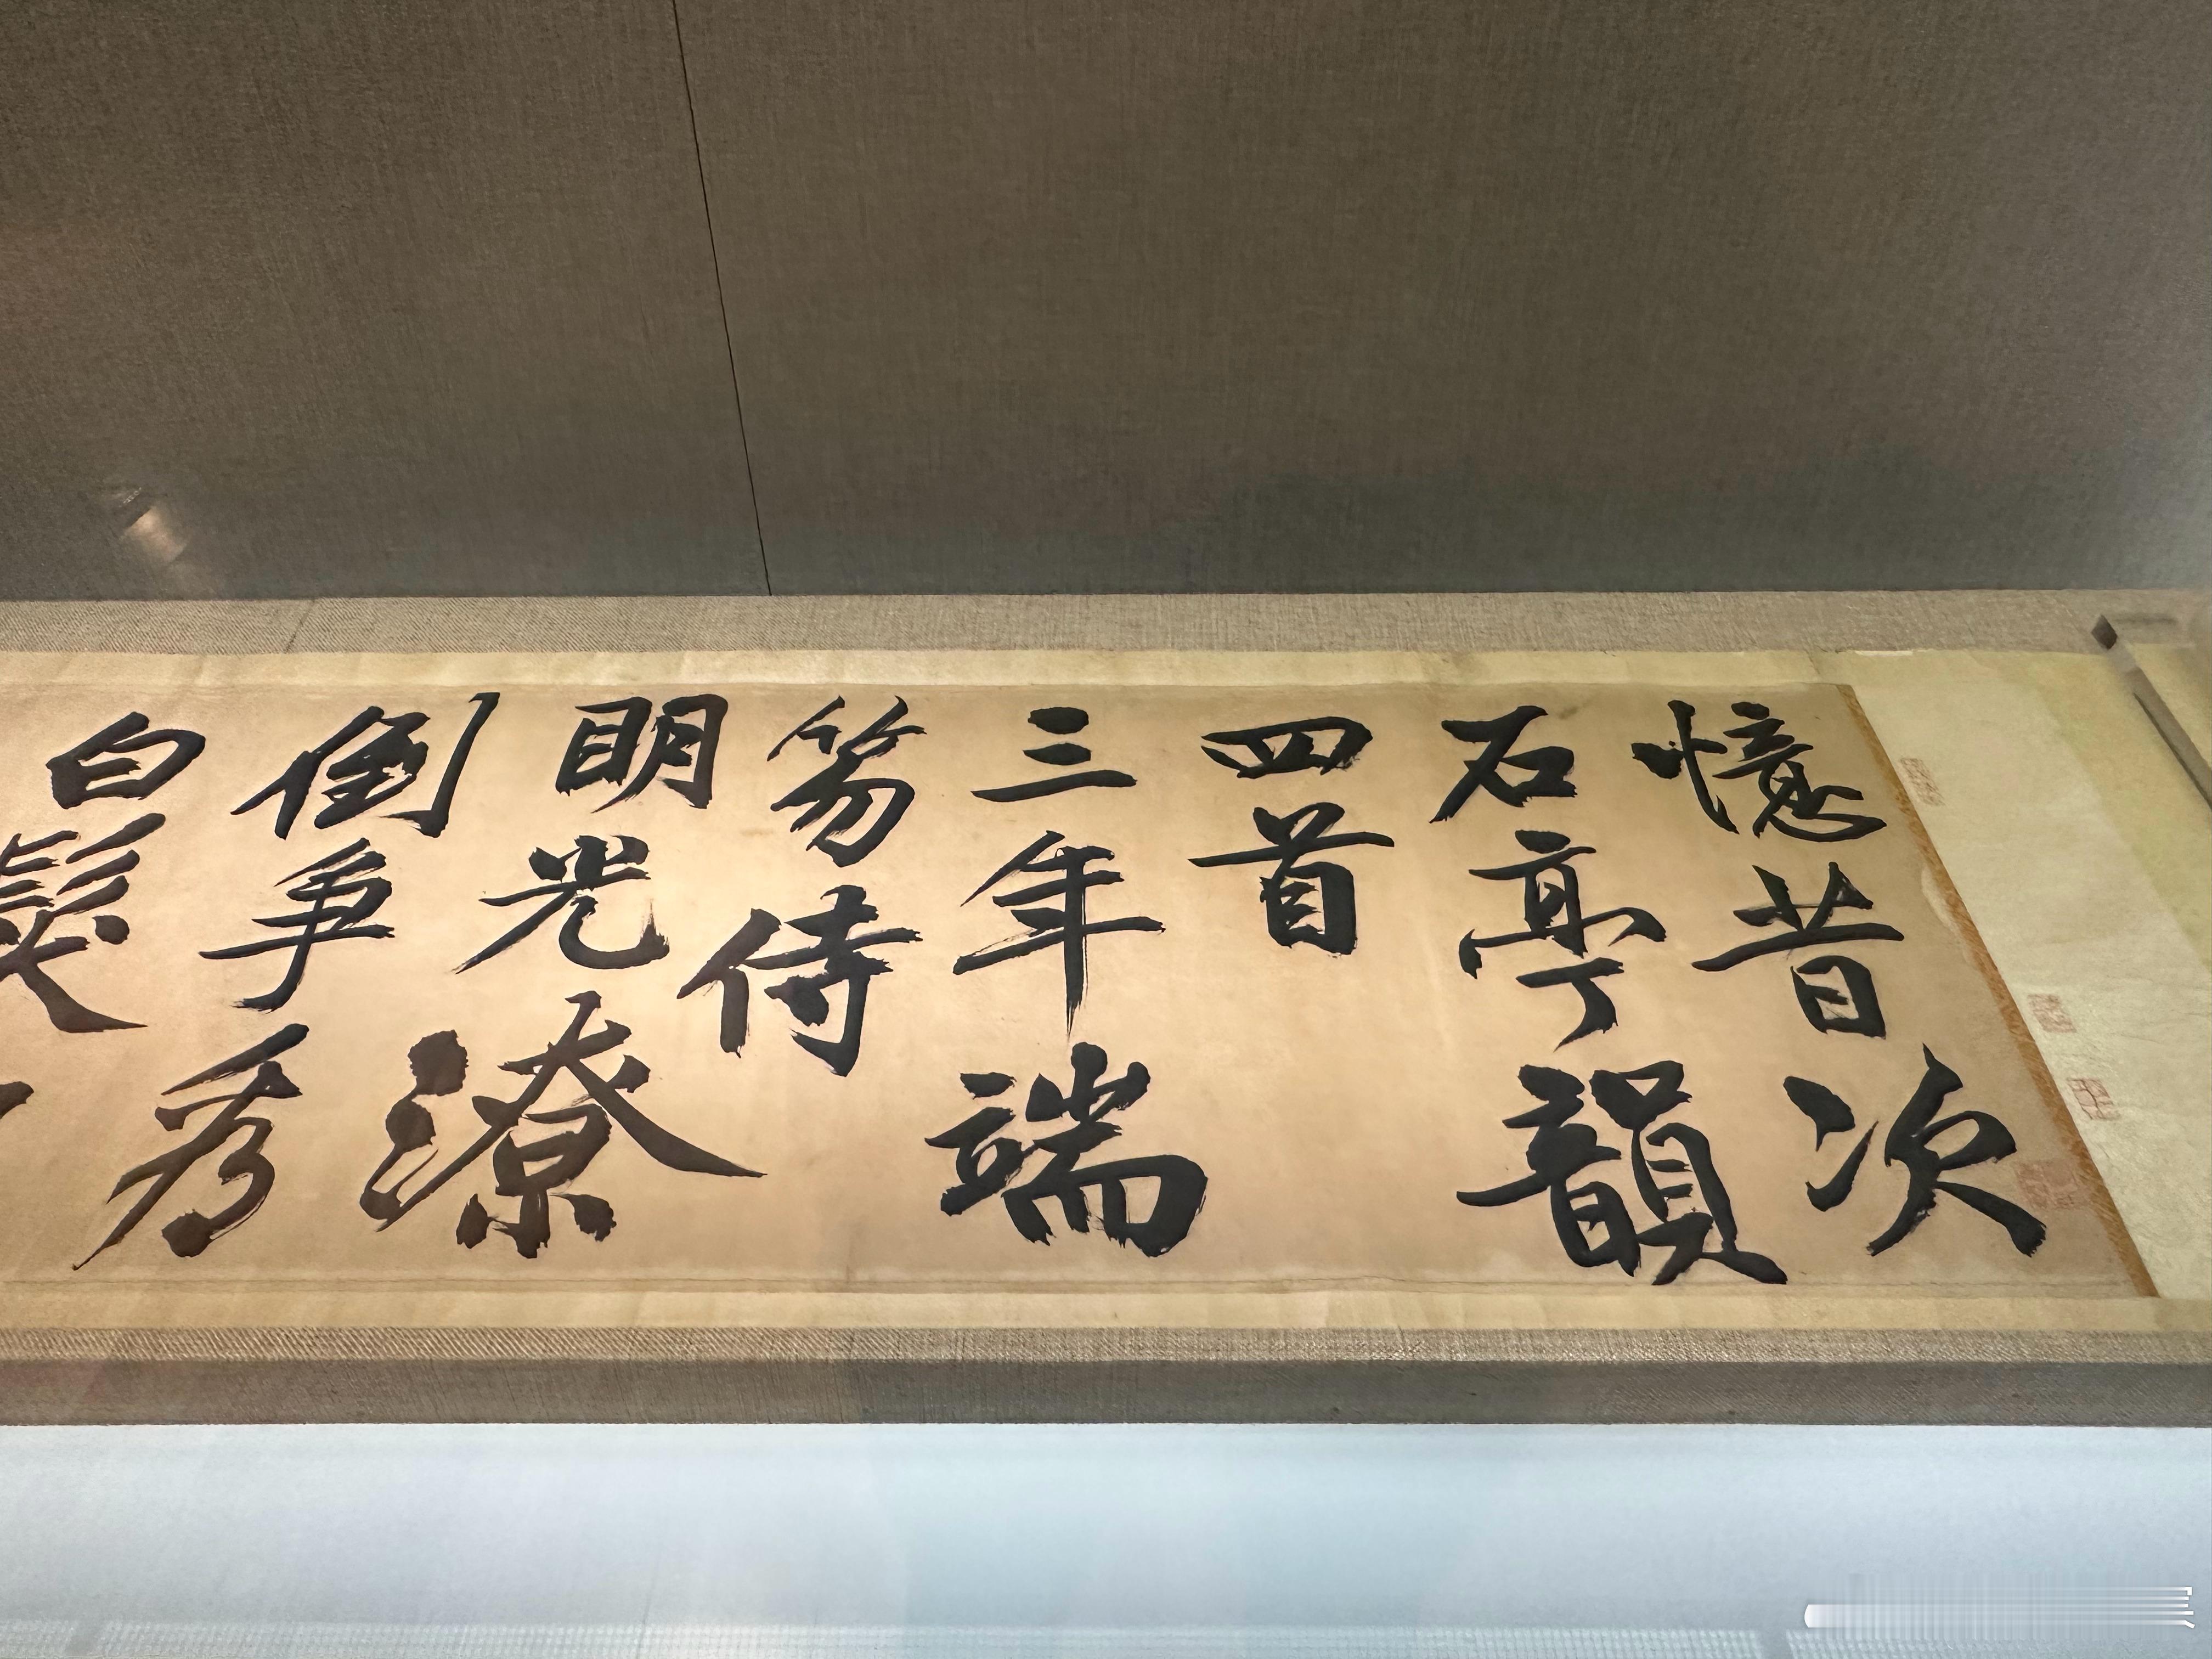 憶昔次
石亭韻
四首
三年端
笏侍
明光潦
倒爭秀
白髮